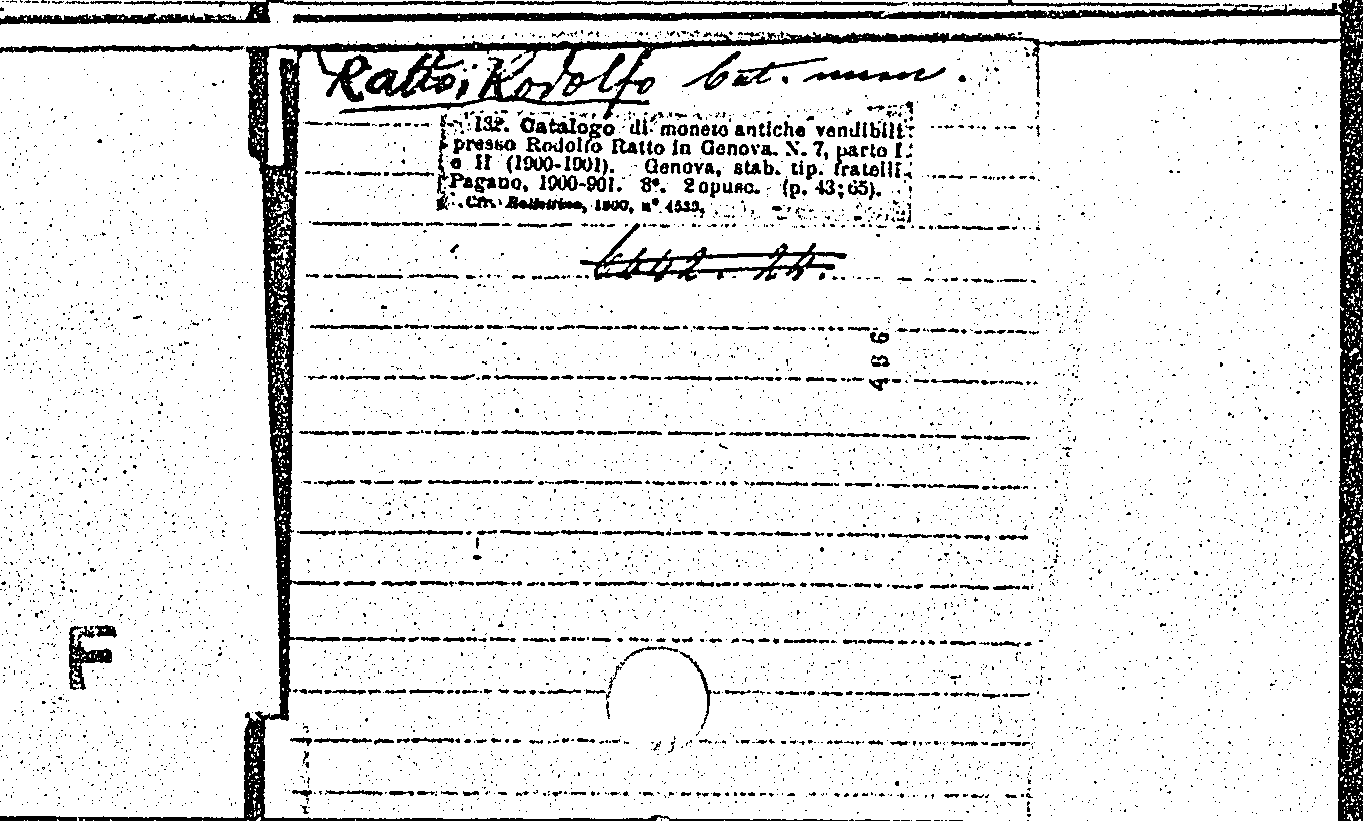 Ratto, Rodolfo Cat. num.
132. Catalogo di monete antiche vendibili
presso Rodolfo Ratto in Genova. N. 7, parte I
e II (1900-1901). Genova, stab. tip. fratelli
Pagano, 1900-901. 8°. 2 opusc. (p. 43; 65).
Cfr. Bollettino, 1900, n° 4533.
6442. 24.
486
F